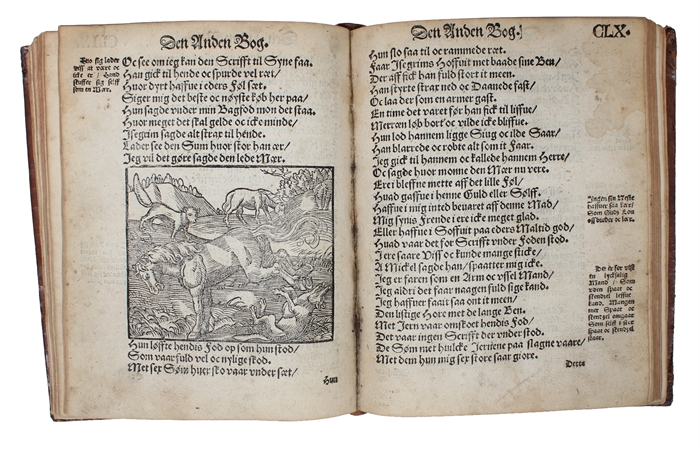 Den Anden Bog.
Tro sig lader
viss at være oc
icke er / Hand
stuffer sig self
som en Mær.
Oc see om ieg kan den Scrifft til Syne faa.
Han gick til hende oc spurde vel ræt /
Huor dyrt haffue i eders Føl sæt.
Siger mig det beste oc nøyste køb her paa /
Hun sagde vnder min Bagfod mon det staa.
Huor meget det skal gelde oc icke minde /
Isegrim sagde alt strax til hende.
Lader see den Sum huor stor han ær /
Jeg vil det gøre sagde den lede Mær.
Hun løffte hendis Fod op som hun stod /
Som vaar fuld vel oc nylige skod.
Met sex Søm huer sko vaar vnder sæt /
Hun
Den Anden Bog.
CLX.
Hun slo saa til oc rammede ræt.
Faar Isegrims Hoffuit met baade sine Ben /
Der aff fick han fuld stort it meen.
Han styrte strax ned oc Daanede fast /
Oc laa der som en armer gast.
En time det varet før han fick til liffue /
Merren løb bort oc vilde icke bliffue.
Hun lod hannem ligge Siug oc ilde Saar /
Han blarrede oc robte alt som it Faar.
Jeg gick til hannem oc kallede hannem Herre /
Oc sagde huor monne den Mær nu vere.
Ere i bleffne mette aff det lille Føl /
Huad gaffue i henne Guld eller Sølff.
Haffue i mig inted beuaret aff denne Mad /
Mig synis Frende i ere icke meget glad.
Eller haffue i Soffuit paa eders Maltid god /
Huad vaar det for Scrifft vnder Foden stod.
I ere saare Viss oc kunde mange sticke /
A Mickel sagde han / spaatter mig icke.
Jeg er faren som en Arm oc vssel Mand /
Jeg aldri det faar naagen fuld sige kand.
Jeg haffuer faait saa ont it meen /
Den listige Hore met de lange Ben.
Met Jern vaar omskoet hendis Fod /
Det vaar ingen Scrifft der vnder stod.
De Søm met huilcke Jernene paa slagne vaare /
Met dem hun mig sex store saar giore.
Ingen sin Neste
haffuer saa kær /
Som Guds Lou
Det er for visst
en lyckelig
Mand / Som
vden spaat oc
skendzel leffue
kand. Mangen
met Spaat oc
skendzel omgaar
Dette